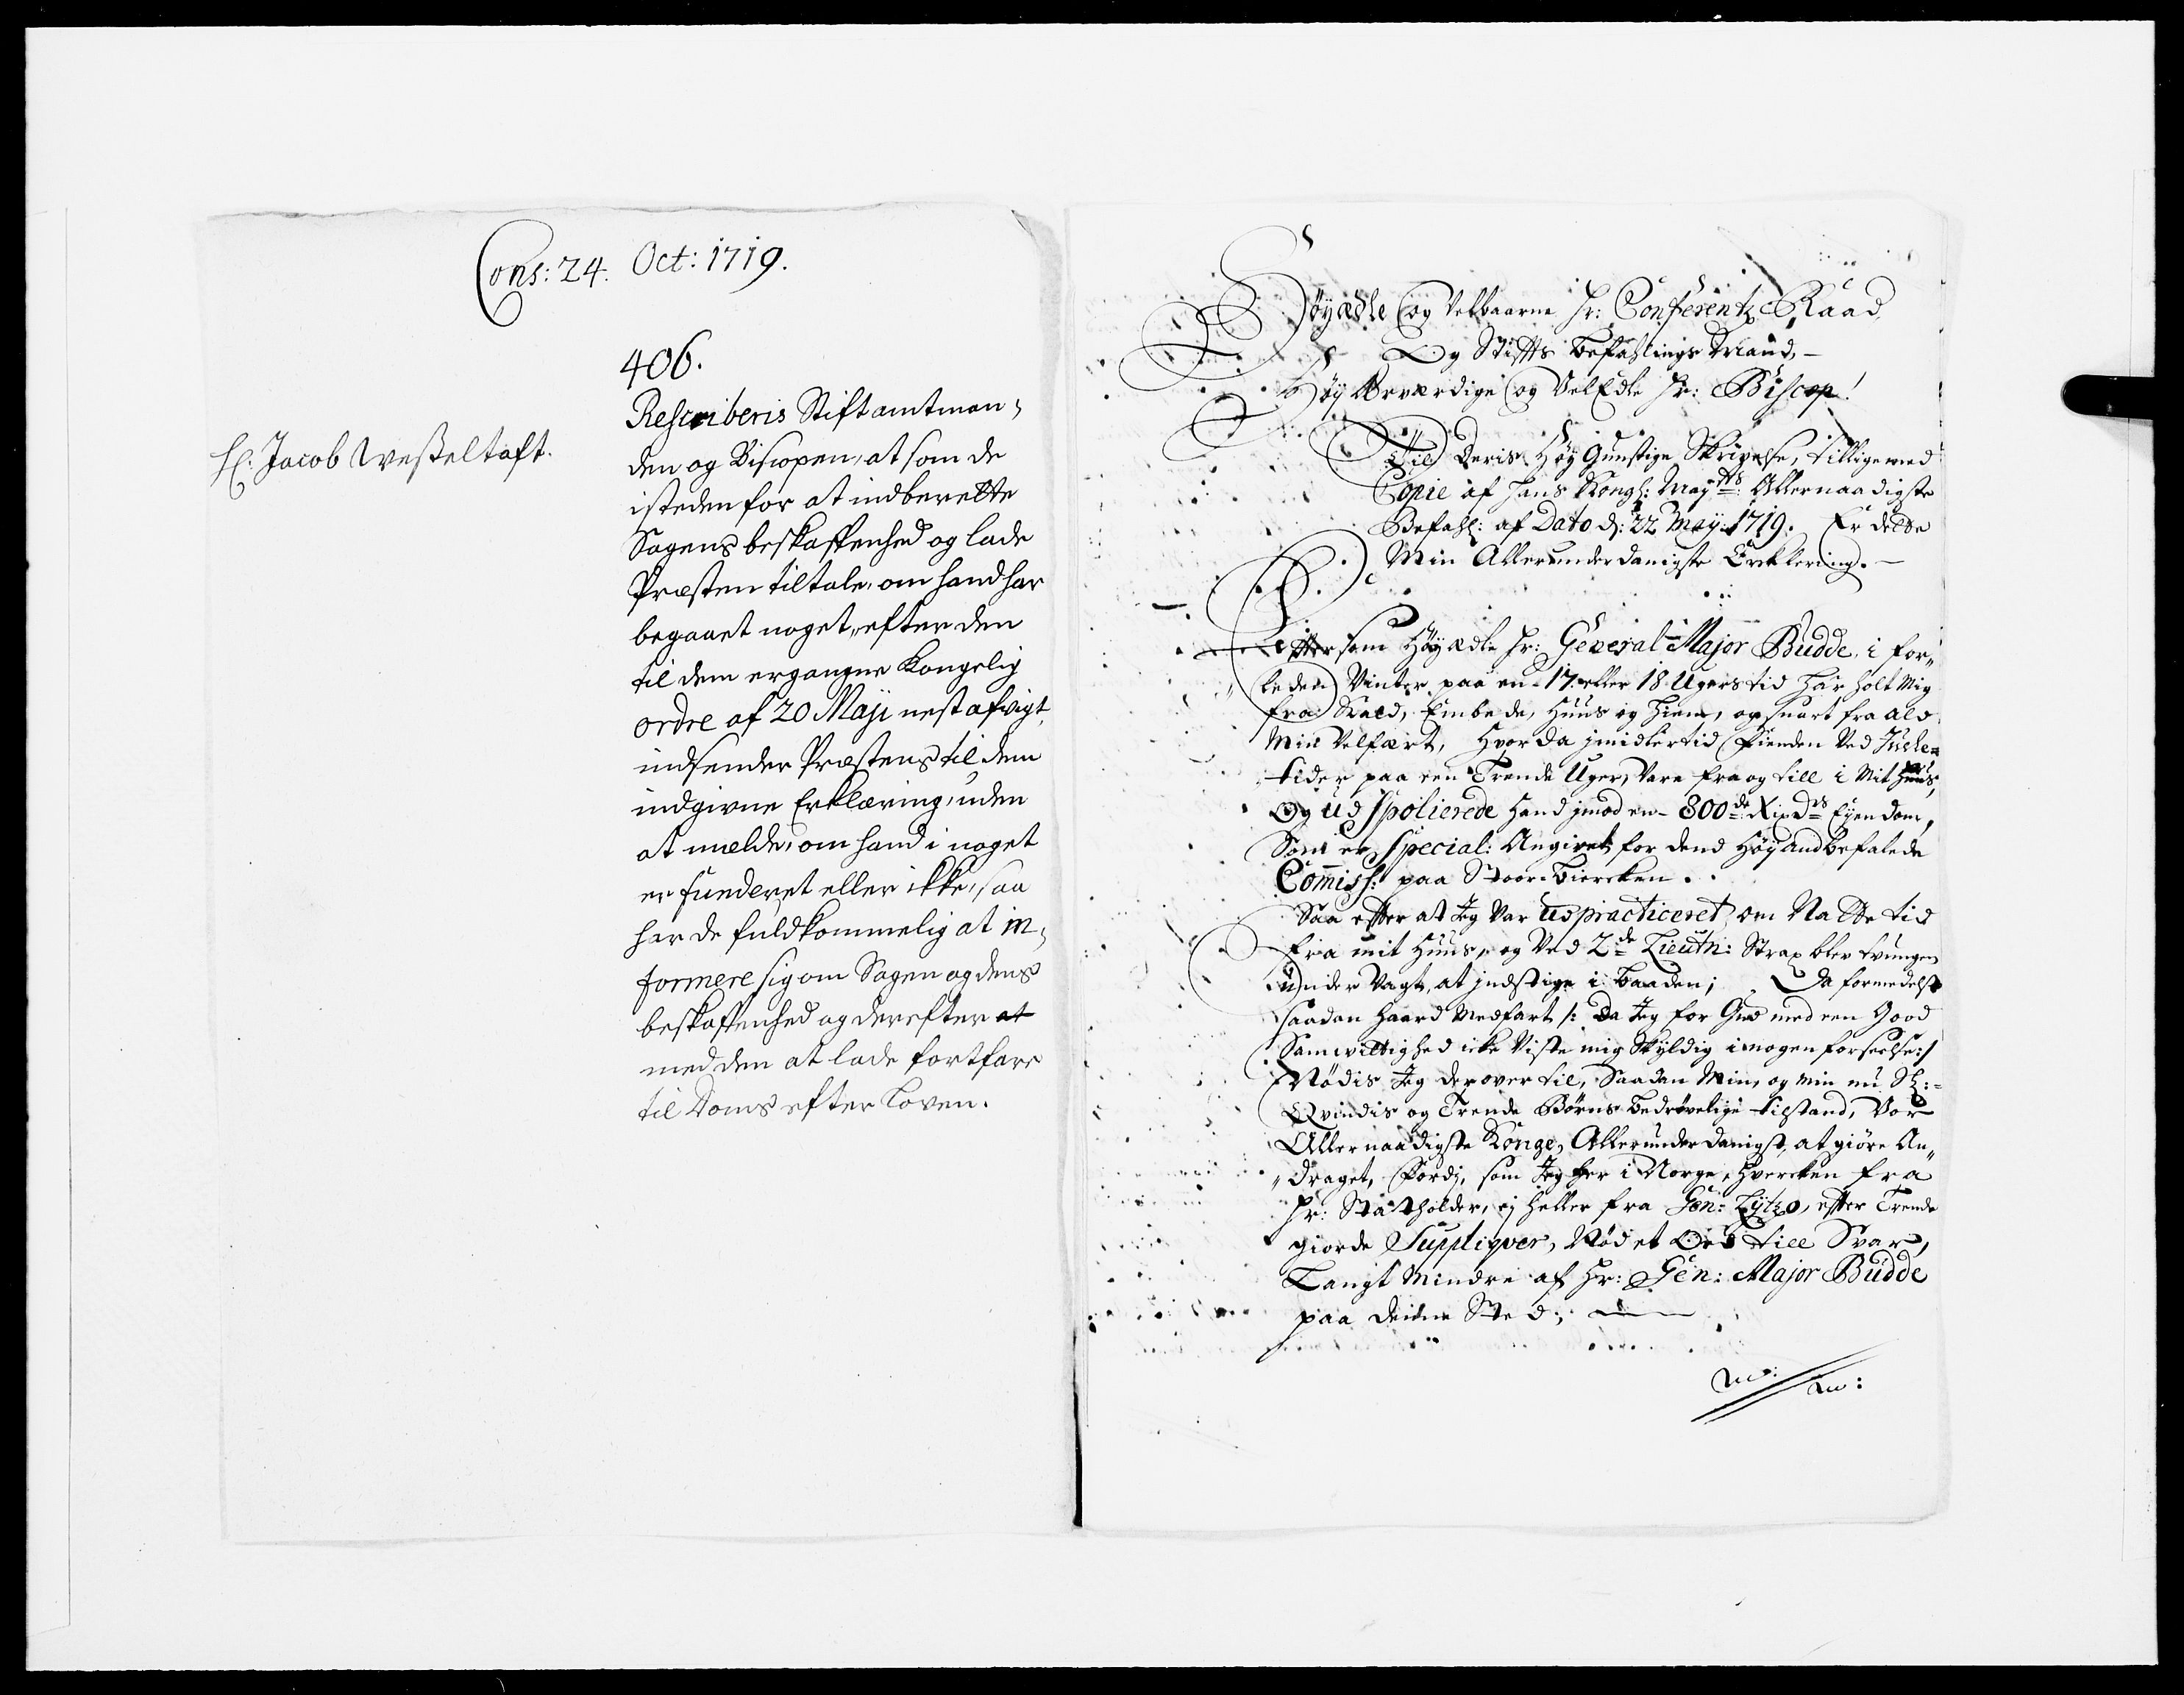 Cons: 24. Oct: 1719.
406.
H: Jacob Wesseltoft.
Rescriberis Stiftamtman,
den og Biscopen, at som de
isteden for at indberette
Sagens beskaffenhed og lade
Præsten tiltale, om hand har
begaaet noget, efter den
til dem ergangne Kongelig
ordre af 20 Maji nest afvigt,
indsender Præstens til dem
indgivne Erklæring, uden
at melde, om hand i noget
er funderet eller ikke, saa
har de fuldkommelig at in,
formere sig om Sagen og dens
beskaffenhed og derefter at
med den at lade fortfare
til Doms efter Loven.
Höyædle og Velbaarne Hr: Conferentz Raad,
Og Stiffts Befahlings Mand,
Höy Ærværdige og VelEdle Hr: Biscop!
Til Deris Höy Gunstige Skrivelse, tillige med
Copie af Hans Kongl: Mayts: Allernaadigste
Befahl: af Dato d: 22 May: 1719. Er dette
Min Allerunderdanigste Erklering.
Eftersom Höyædle Hr: General-Major Budde, i for„
„leden Vinter paa en 17. eller 18 Ugers tid har holt Mig
fra Kald, Embede, Huus og Hiem, og snart fra ald
Min Velfært, Hvor da jmidlertid Fienden Ved Jule=
tider paa een Trende Uger, Vare fra og till i Mit Huus,
Og udspolierede Hand jmod en 800de Rixdrs Eyendom,
Som er special: Angivet for dend Höy andbefalede
Commiss: paa Stoer-Biercken.
Saa effter at Jeg Var udpracticeret om Natte tid
fra mit Huus, og Ved 2de Lieutn: Strax blev tvungen
under Vagt, at jndstige i Baaden; Da formedelst
saadan haard Medfart /: Da Jeg for Gud med een Good
Samvittighed icke Viste mig Skyldig i nogen forseelse:/
Nödis Jeg derover til, Saadan Min, og min nu Sl:
Qvindis og Trende Börns bedrövelige tilstand, Vor
Allernaadigste Konge, Allerunderdanigst, at giöre An„
„draget, Fordj, som Jeg her i Norge, hvercken fra
Hr: Statholder, ej heller fra Gen: Lytzo, effter Trende
giorde Suppliqver, Nöd et Ord till Svar,
Langt Mindre af Hr: Gen: Major Budde
paa